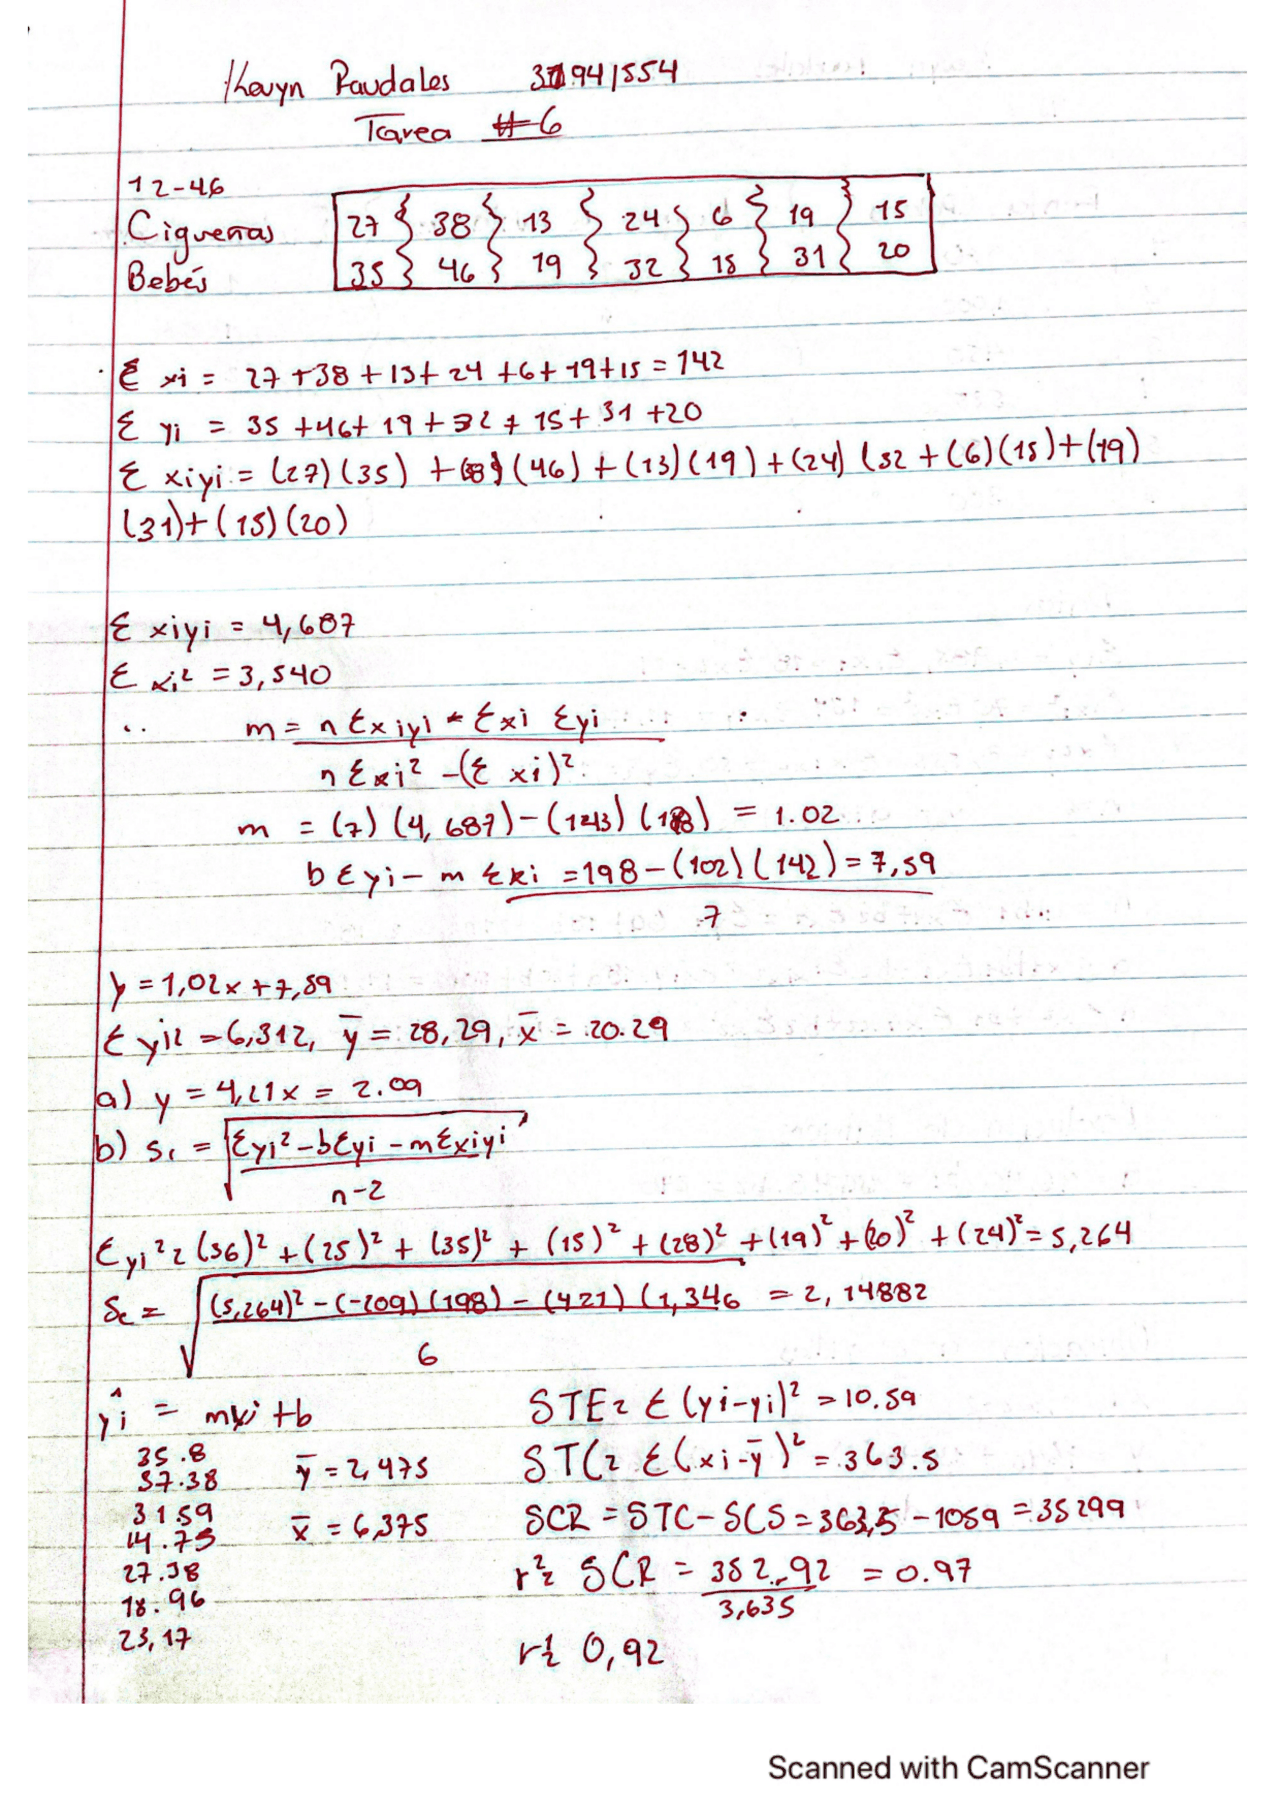 Jhevyn Paudales 30941554
Tarea #6
12-46
Ciguenas 27 38 13 24 6 19 15
Bebés 35 46 19 32 15 31 20
Σ xi = 27+38+13+24+6+19+15=142
Σ yi = 35+46+19+32+15+31+20
Σ xiyi = (27)(35) + (38)(46) + (13)(19)+(24)(32+(6)(15)+(19)
(31)+(15)(20)
Σ xiyi = 4,687
Σ xi² = 3,540
m = nΣxiyi - Σxi Σyi
nΣxi² -(Σ xi)²
m = (7)(4,687)-(143)(198) = 1.02
bΣyi - m Σxi = 198-(102)(142)=7,59
7
y=1,02x+7,59
Σyi² =6,312, ȳ = 28,29, x̄ = 20.29
a) y = 4,21x = 2.09
b) Sc = √Σyi²-bΣyi-mΣxiyi
n-2
Σyi²= (36)²+(25)²+(35)²+(15)²+(28)²+(19)²+(20)²+(24)²=5,264
Sc = √(5,264)²-(-209)(198)-(421)(1,346 = 2,14882
6
ŷi = mxi+b STE= Σ(yi-yi)²=10.59
35.8
37.38 ȳ=2,475 STC= Σ(xi-ȳ)²=363.5
31.59 x̄ = 6,375 SCR = STC-SCS=363,5-1059=35299
14.75
27.38 r²= SCR = 352.92 = 0.97
3,635
18.96
23,17 r= 0,92
Scanned with CamScanner